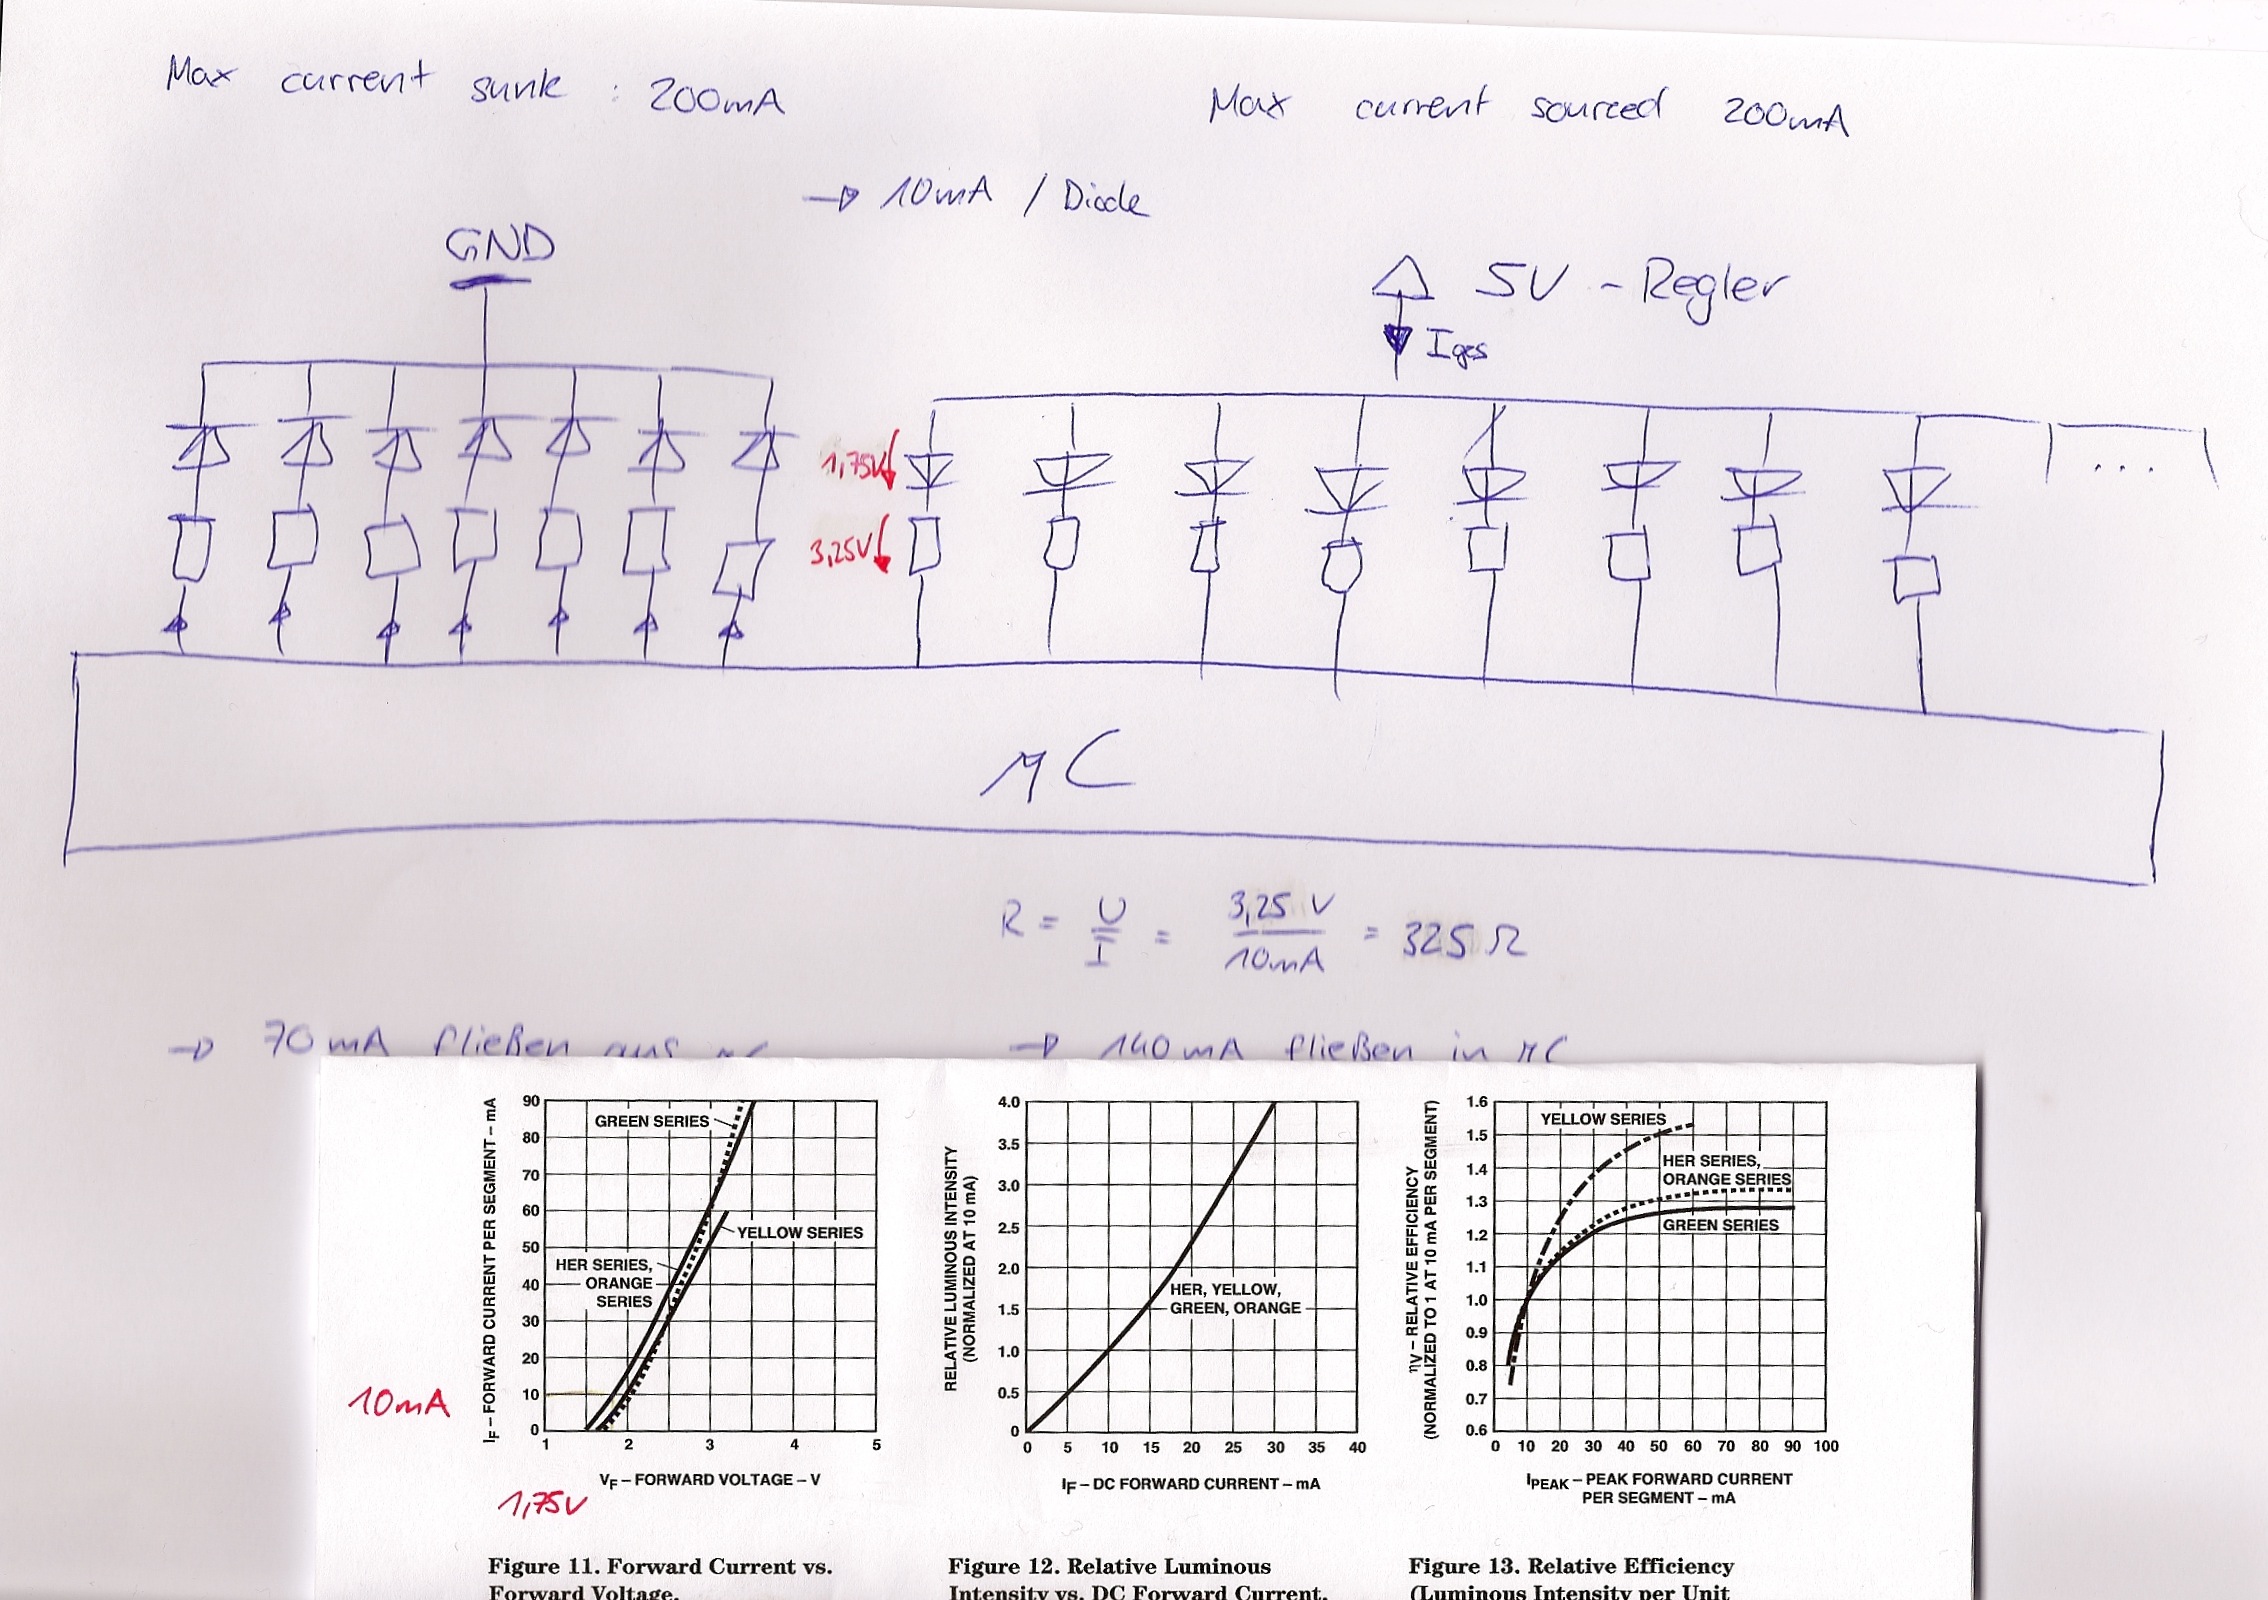 Max current sunk : 200mA
Max current sourced 200mA
→ 10mA / Diode
GND
5V - Regler
Iges
1,75V
3,25V
...
µC
R = U/I = 3,25 V / 10mA = 325 Ω
→ 70mA fließen aus µC
→ 140mA fließen in µC
10mA
1,75V
IF – FORWARD CURRENT PER SEGMENT – mA
90
80
70
60
50
40
30
20
10
0
1 2 3 4 5
GREEN SERIES
YELLOW SERIES
HER SERIES,
ORANGE
SERIES
VF – FORWARD VOLTAGE – V
Figure 11. Forward Current vs.
Forward Voltage.
RELATIVE LUMINOUS INTENSITY
(NORMALIZED AT 10 mA)
4.0
3.5
3.0
2.5
2.0
1.5
1.0
0.5
0
0 5 10 15 20 25 30 35 40
HER, YELLOW,
GREEN, ORANGE
IF – DC FORWARD CURRENT – mA
Figure 12. Relative Luminous
Intensity vs. DC Forward Current.
ηV – RELATIVE EFFICIENCY
(NORMALIZED TO 1 AT 10 mA PER SEGMENT)
1.6
1.5
1.4
1.3
1.2
1.1
1.0
0.9
0.8
0.7
0.6
0 10 20 30 40 50 60 70 80 90 100
YELLOW SERIES
HER SERIES,
ORANGE SERIES
GREEN SERIES
IPEAK – PEAK FORWARD CURRENT
PER SEGMENT – mA
Figure 13. Relative Efficiency
(Luminous Intensity per Unit